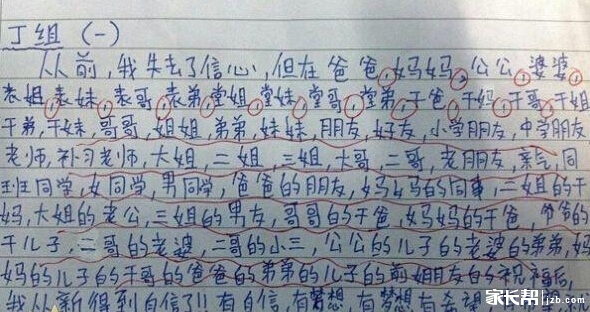 丁组(一)
从前,我失去了信心,但在爸爸,妈妈,公公,婆婆,
表姐,表妹,表哥,表弟,堂姐,堂妹,堂哥,堂弟,干爸,干妈,干哥,干姐
干弟,干妹,哥哥,姐姐,弟弟,妹妹,朋友,好友,小学朋友,中学朋友,
老师,补习老师,大姐,二姐,三姐,大哥,二哥,老朋友,亲气,同
班同学,女同学,男同学,爸爸的朋友,妈妈的同事,二姐的干
妈,大姐的老公,三姐的男友,哥哥的干爸,妈妈的干爸,爷爷的
干儿子,二哥的老婆,二哥的小三,公公的儿子的老婆的弟弟,妈
妈的儿子的干哥的爸爸的弟弟的儿子的前女朋友的祝福后,
我从新得到自信了!!有自信,有梦想,有梦想有希望
家长帮 jzb.com